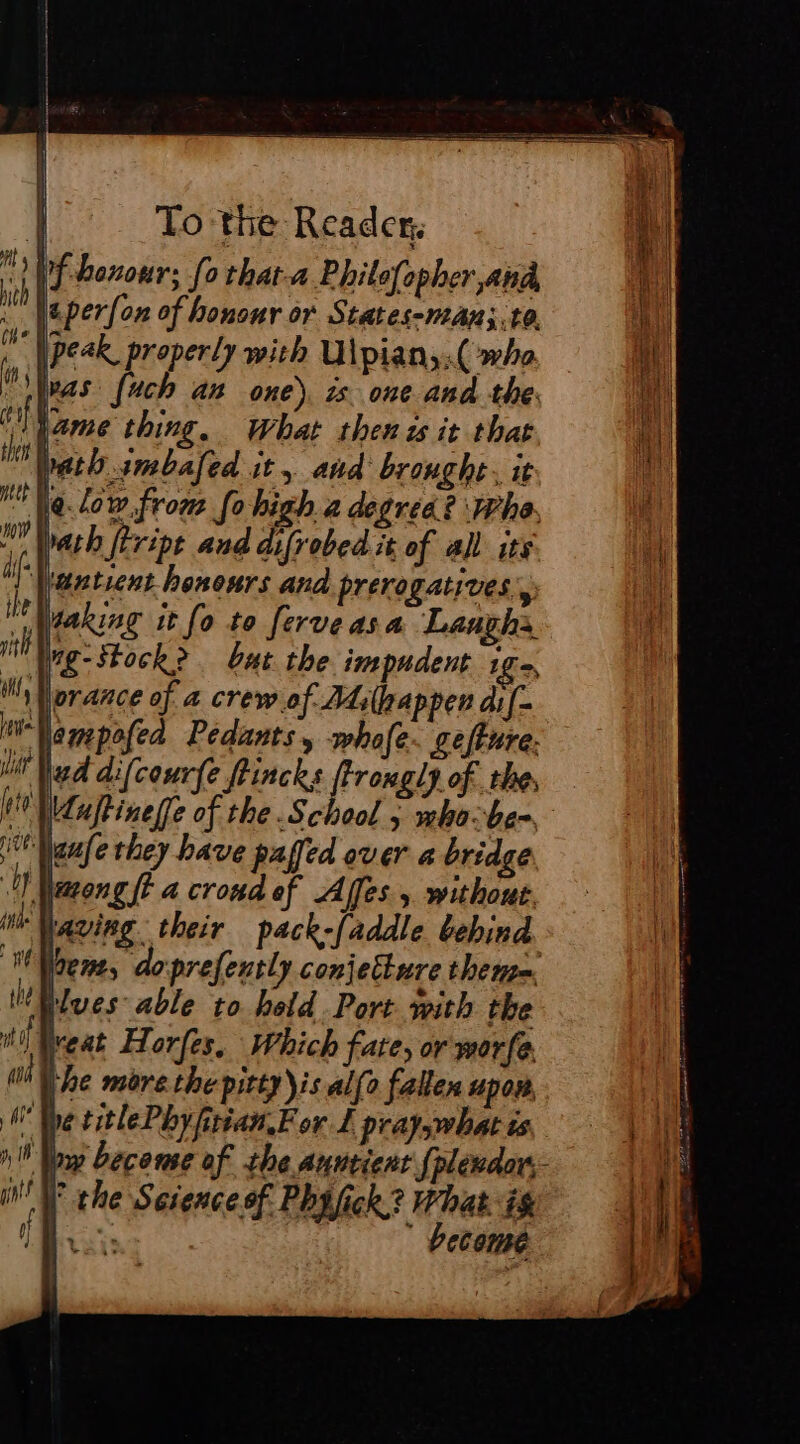 To the Reader.
of honour; ſo that a Philoſopher, and
a perſon of honour or States-man; to
ſpeak properly with Ulpian, (who
was ſuch an one) is one and the
ſame thing. What then is it that
hath imbaſed it, and brought it
ſo low from ſo high a degree? Who
hath ſtript and diſrobed it of all its
auntient honours and prerogatives,
making it ſo to ſerve as a Laugh-
ing-ſtock? but the impudent ig-
norance of a crew of Miſhappen diſ-
compoſed Pedants, whoſe geſture
and diſcourſe ſtincks ſtrongly of the
Muſtineſſe of the School, who be-
cauſe they have paſſed over a bridge
amongſt a croud of Aſſes, without
leaving their pack-ſaddle behind
them, do preſently conjecture them-
ſelves able to hold Port with the
great Horſes. Which fate, or worſe
(the more the pitty) is alſo fallen upon
the title Phyſitian, For I pray, what is
now become of the auntient ſplendor
of the Science of Phyſick? What is
become